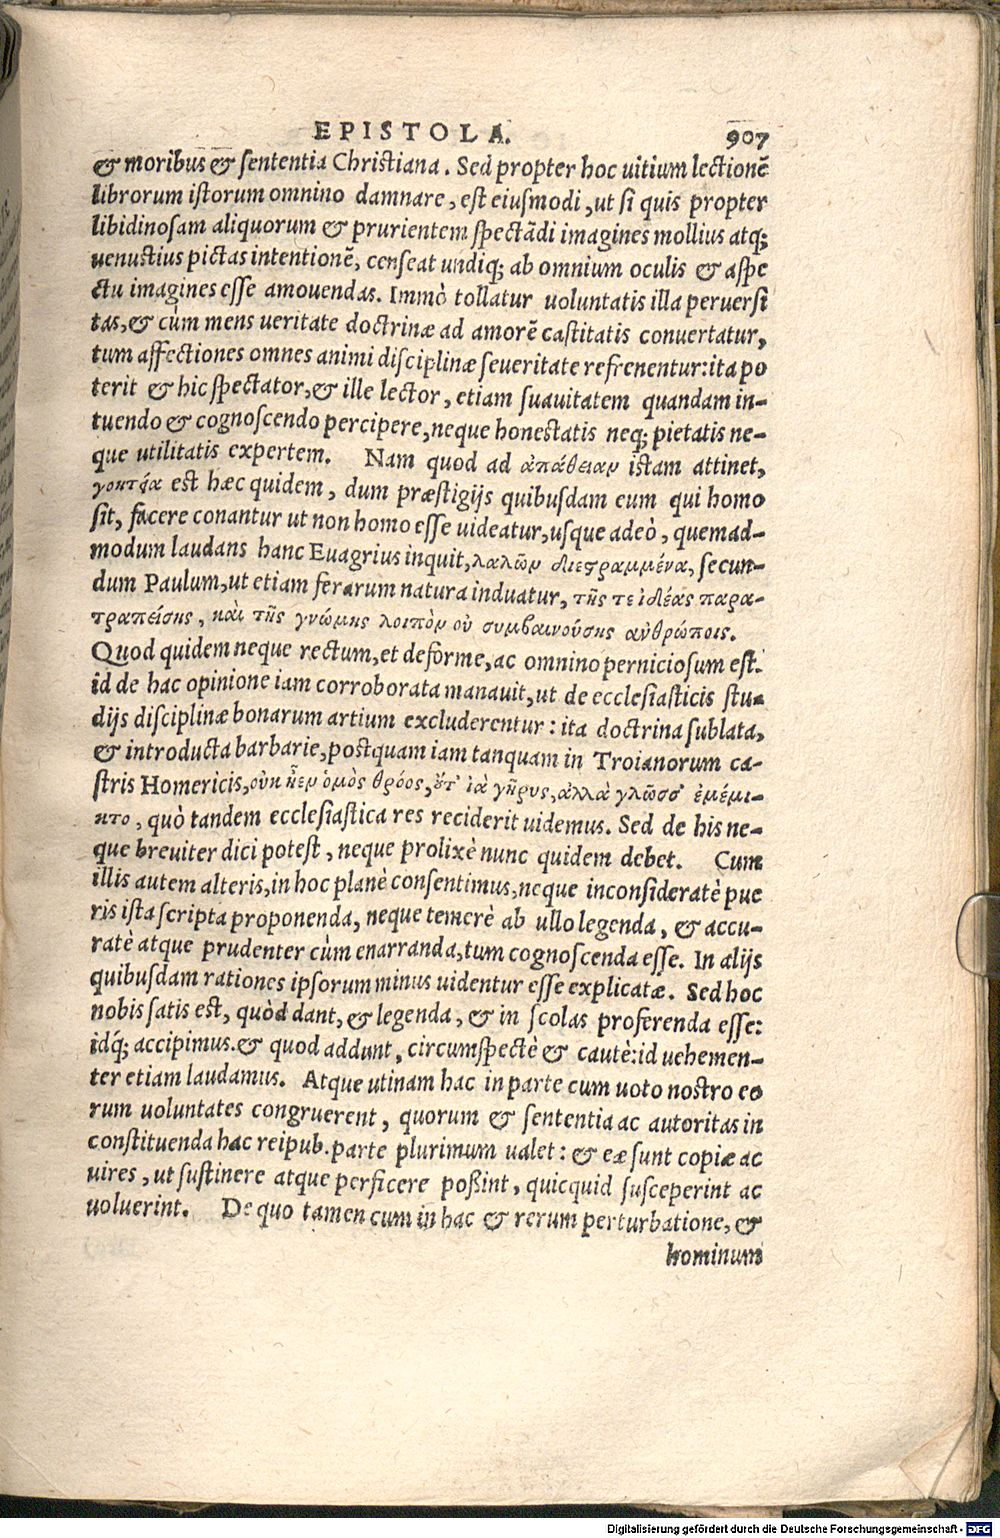 EPISTOLA. 907
& moribus & sententia Christiana. Sed propter hoc uitium lectionē
librorum istorum omnino damnare, est eiusmodi, ut si quis propter
libidinosam aliquorum & prurientem spectādi imagines mollius atq;
uenustius pictas intentionē, censeat undiq; ab omnium oculis & aspe
ctu imagines esse amouendas. Immò tollatur uoluntatis illa peruersi
tas, & cùm mens ueritate doctrinæ ad amorē castitatis conuertatur,
tum affectiones omnes animi disciplinæ seueritate refrenentur: ita po
terit & hic spectator, & ille lector, etiam suauitatem quandam in-
tuendo & cognoscendo percipere, neque honestatis neq; pietatis ne-
que utilitatis expertem. Nam quod ad ἀπάθειαν istam attinet,
γοητεία est hæc quidem, dum præstigijs quibusdam eum qui homo
sit, facere conantur ut non homo esse uideatur, usque adeò, quemad-
modum laudans hanc Euagrius inquit, λαλῶν διεστραμμένα, secun-
dum Paulum, ut etiam ferarum natura induatur, τῆς τε ἰδέας παρα-
τραπείσης, καὶ τῆς γνώμης λοιπὸν οὐ συμβαινούσης ἀνθρώποις.
Quod quidem neque rectum, et deforme, ac omnino perniciosum est.
id de hac opinione iam corroborata manauit, ut de ecclesiasticis stu-
dijs disciplinæ bonarum artium excluderentur: ita doctrina sublata,
& introducta barbarie, postquam iam tanquam in Troianorum ca-
stris Homericis, οὐκ ἦεν ὁμὸς θρόος, ἐδ' ἰὰ γῆρυς, ἀλλὰ γλῶσσ' ἐμέμι-
κτο, quò tandem ecclesiastica res reciderit uidemus. Sed de his ne-
que breuiter dici potest, neque prolixè nunc quidem debet. Cum
illis autem alteris, in hoc planè consentimus, neque inconsideratè pue
ris ista scripta proponenda, neque temerè ab ullo legenda, & accu-
ratè atque prudenter cùm enarranda, tum cognoscenda esse. In alijs
quibusdam rationes ipsorum minus uidentur esse explicatæ. Sed hoc
nobis satis est, quòd dant, & legenda, & in scolas proferenda esse:
idq́; accipimus. & quod addunt, circumspectè & cautè: id uehemen-
ter etiam laudamus. Atque utinam hac in parte cum uoto nostro eo
rum uoluntates congruerent, quorum & sententia ac autoritas in
constituenda hac reipub. parte plurimum ualet: & eæ sunt copiæ ac
uires, ut sustinere atque perficere poßint, quicquid susceperint ac
uoluerint. De quo tamen cum in hac & rerum perturbatione, &
hominum
Digitalisierung gefördert durch die Deutsche Forschungsgemeinschaft - DFG